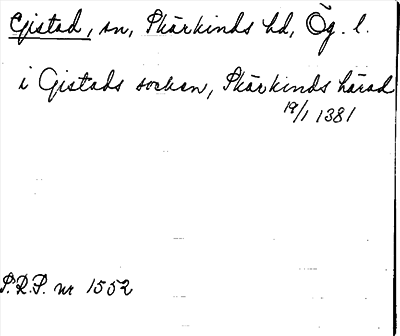 Gistad, sn, Skärkinds hd, Ög. l.
i Gistads socken, Skärkinds härad
19/1 1381
S.R.P. nr 1552